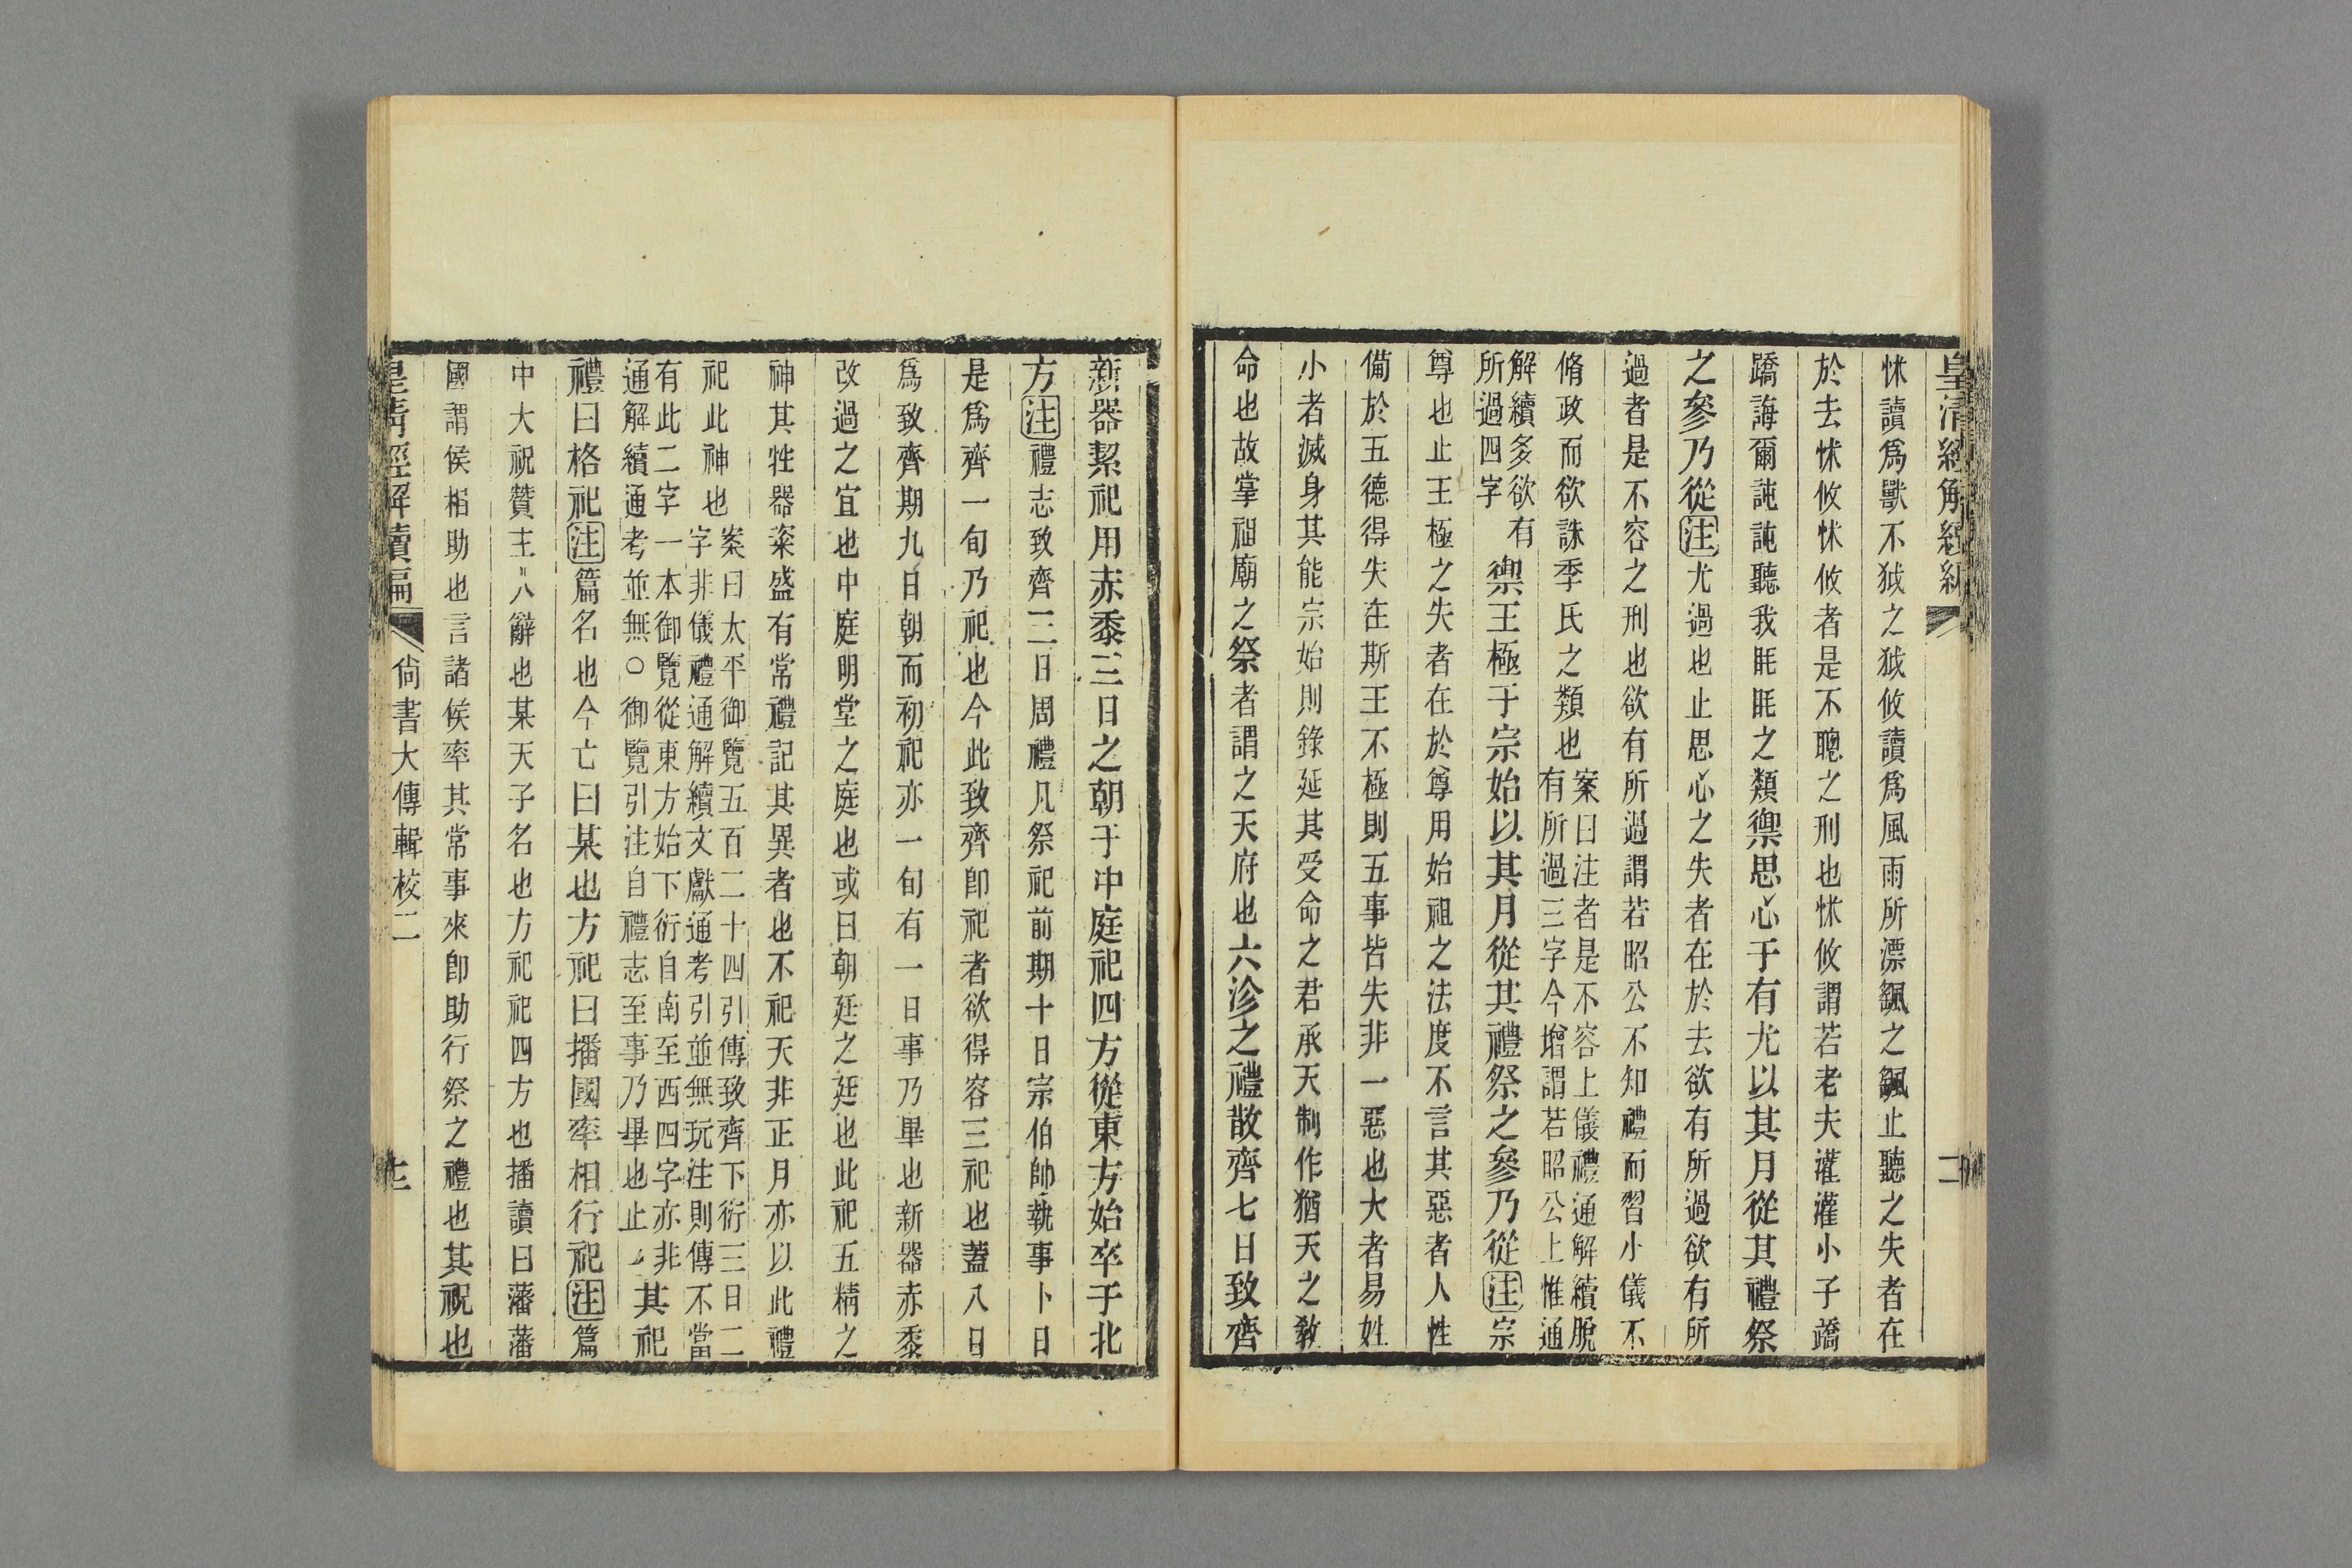 皇清經解經
怵讀爲獸不狘之狘攸讀爲風雨所漂颻之颻止聽之失者在
於去怵攸怵攸者是不聰之刑也怵攸謂若老夫灌灌小子蹻
蹻誨爾訰訰聽我眊眊之類禦思心于有尤以其月從其禮祭
之參乃從注尤過也止思心之失者在於去欲有所過欲有所
過者是不容之刑也欲有所過謂若昭公不知禮而習小儀不
脩政而欲誅季氏之類也案曰注者是不容上儀禮通解續脫
有所過三字今增謂若昭公上惟通
解續多欲有
所過四字禦王極于宗始以其月從其禮祭之參乃從注宗
尊也止王極之失者在於尊用始祖之法度不言其惡者人性
備於五德得失在斯王不極則五事皆失非一惡也大者易姓
小者滅身其能宗始則錄延其受命之君承天制作猶天之敎
命也故掌祖廟之祭者謂之天府也六沴之禮散齊七日致齊
新器絜祀用赤黍三日之朝于中庭祀四方從東方始卒于北
方注禮志致齊三日周禮凡祭祀前期十日宗伯帥執事卜日
是爲齊一旬乃祀也今此致齊卽祀者欲得容三祀也蓋八日
爲致齊期九日朝而初祀亦一旬有一日事乃畢也新器赤黍
改過之宜也中庭明堂之庭也或曰朝廷之廷也此祀五精之
神其牲器粢盛有常禮記其異者也不祀天非正月亦以此禮
祀此神也案曰太平御覽五百二十四引傳致齊下衍三日二
字非儀禮通解續文獻通考引並無玩注則傳不當
有此二字一本御覽從東方始下衍自南至西四字亦非
通解續通考並無○御覽引注自禮志至事乃畢也止其祀
禮曰格祀注篇名也今亡曰某也方祀曰播國率相行祀注篇
中大祝贊主八辭也某天子名也方祀祀四方也播讀曰藩藩
國謂侯相助也言諸侯率其常事來卽助行祭之禮也其祝也
皇清經解續編 尙書大傳輯校二